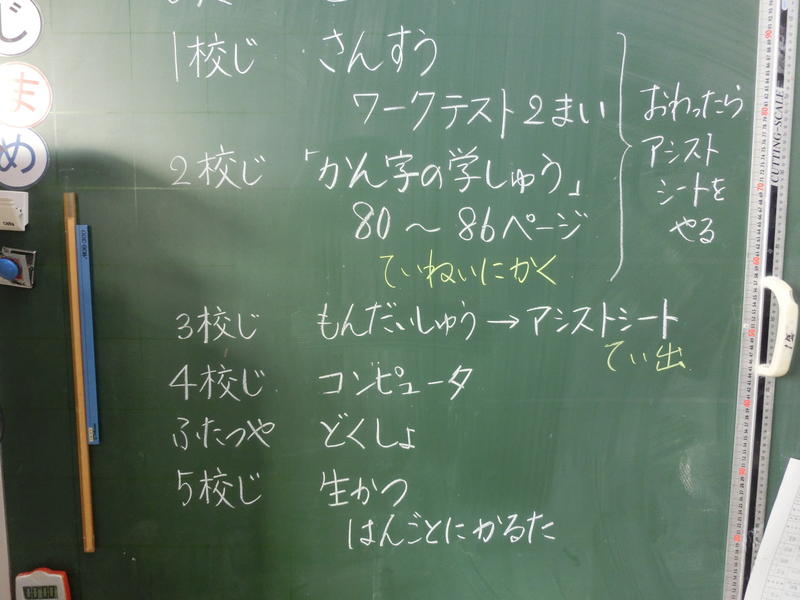 じ
ま
め
1校じ さんすう
ワークテスト2まい
2校じ 「かん字の学しゅう」
80～86ページ
ていねいにかく
おわったら
アシスト
シートを
やる
3校じ もんだいしゅう→アシストシート
てい出
4校じ コンピュータ
ふたつや どくしょ
5校じ 生かつ
はんごとにかるた
CUTTING-SCALE